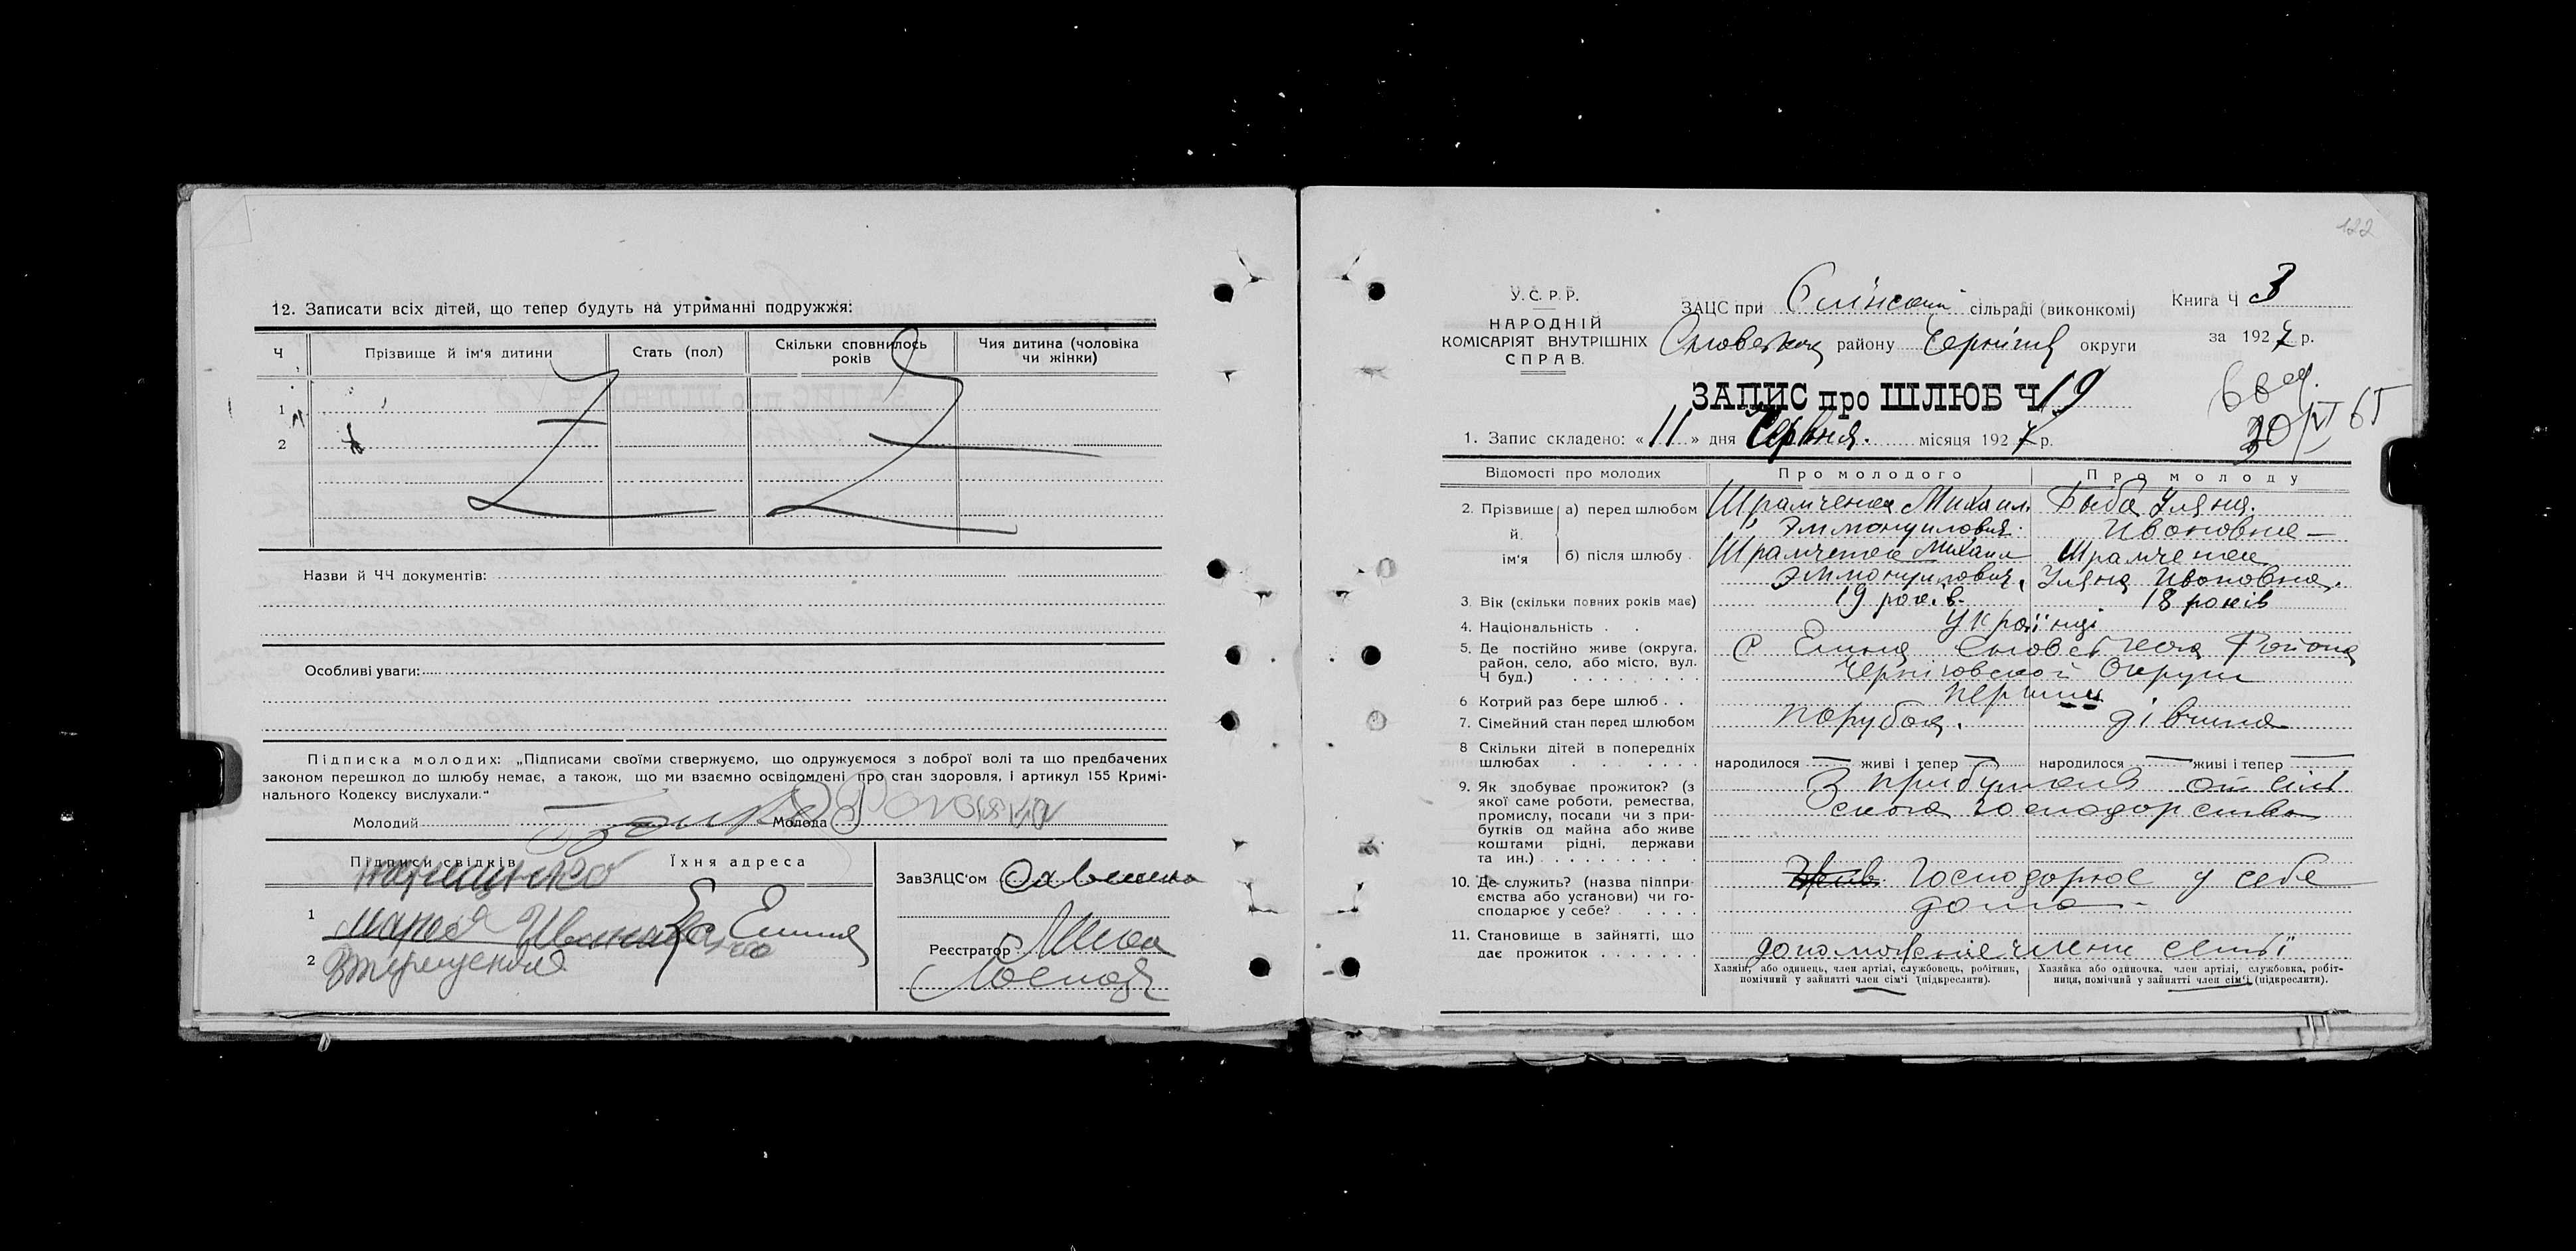 12. Записати всіх дітей, що тепер будуть на утриманні подружжя:
Ч
Прізвище й ім'я дитини
Стать (пол)
Скільки сповнилось років
Чия дитина (чоловіка чи жінки)
1
2
Назви й ЧЧ документів:
Особливі уваги:
Підписка молодих: „Підписами своїми стверджуємо, що одружуємося з доброї волі та що предбачених
законом перешкод до шлюбу немає, а також, що ми взаємно освідомлені про стан здоровля, і артикул 155 Кримі-
нального Кодексу вислухали."
Молодий
Молода
Підписи свідків
Їхня адреса
1
2
ЗавЗАЦС'ом
Реєстратор
122
У.С.Р.Р.
НАРОДНІЙ
КОМІСАРІЯТ ВНУТРІШНІХ
СПРАВ.
ЗАЦС при сільраді (виконкомі)
району округи
Книга Ч 3
за 1927 р.
ЗАПИС про ШЛЮБ Ч 19
1. Запис складено: «11» дня Червня місяця 1927 р.
30/VI 65
Відомості про молодих
Про молодого
Про молоду
2. Прізвище й ім'я
а) перед шлюбом
Шрамченка Михаил
Эммануилович
Рыба Уляна
Ивановна –
б) після шлюбу
Шрамченка Михаил
Эммануилович
Шрамченка
Уляна Ивановна
3. Вік (скільки повних років має)
19 років
18 років
4. Національність
Українці
5. Де постійно живе (округа,
район, село, або місто, вул.
Ч буд.)
С Елина Района
Черніговской Округи
6 Котрий раз бере шлюб
перший
7. Сімейний стан перед шлюбом
порубок.
дівчина
8 Скільки дітей в попередніх
шлюбах
народилося — живі і тепер —
народилося — живі і тепер —
9. Як здобуває прожиток? (з
якої саме роботи, ремества,
промислу, посади чи з при-
бутків од майна або живе
коштами рідні, держави
та ин.)
З прибутков от сільского господарства
10. Де служить? (назва підпри-
ємства або установи) чи го-
сподарює у себе?
господорює у себе
дома –
11. Становище в зайнятті, що
дає прожиток
Хазяїн, або одинець, член артілі, службовець, робітник,
помічний у зайнятті член сім'ї (підкреслити).
Хазяйка або одиночка, член артілі, службовка, робіт-
ниця, помічний у зайнятті член сім'ї (підкреслити).